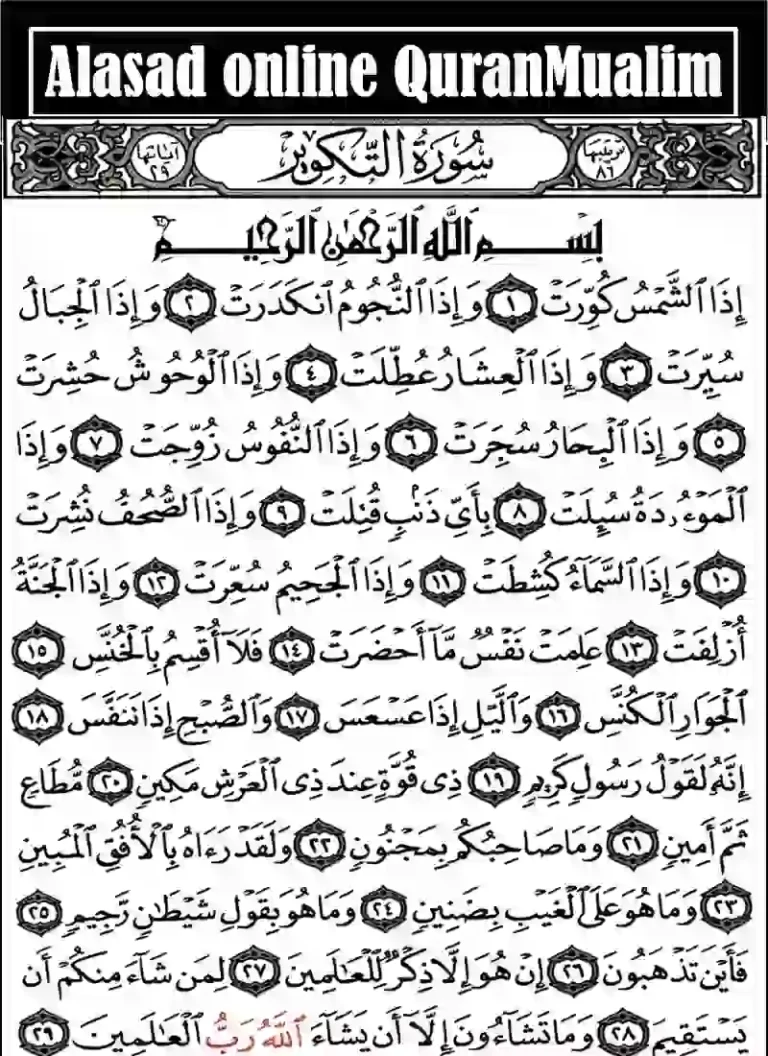 Alasad online QuranMualim
ترتيبها ٨٦ سُورَةُ التَّكْوِيرِ آياتها ٢٩
بِسْمِ اللَّهِ الرَّحْمَٰنِ الرَّحِيمِ
إِذَا ٱلشَّمْسُ كُوِّرَتْ ١ وَإِذَا ٱلنُّجُومُ ٱنكَدَرَتْ ٢ وَإِذَا ٱلْجِبَالُ
سُيِّرَتْ ٣ وَإِذَا ٱلْعِشَارُ عُطِّلَتْ ٤ وَإِذَا ٱلْوُحُوشُ حُشِرَتْ
٥ وَإِذَا ٱلْبِحَارُ سُجِّرَتْ ٦ وَإِذَا ٱلنُّفُوسُ زُوِّجَتْ ٧ وَإِذَا
ٱلْمَوْءُۥدَةُ سُئِلَتْ ٨ بِأَىِّ ذَنۢبٍ قُتِلَتْ ٩ وَإِذَا ٱلصُّحُفُ نُشِرَتْ
١٠ وَإِذَا ٱلسَّمَآءُ كُشِطَتْ ١١ وَإِذَا ٱلْجَحِيمُ سُعِّرَتْ ١٢ وَإِذَا ٱلْجَنَّةُ
أُزْلِفَتْ ١٣ عَلِمَتْ نَفْسٌ مَّآ أَحْضَرَتْ ١٤ فَلَآ أُقْسِمُ بِٱلْخُنَّسِ ١٥
ٱلْجَوَارِ ٱلْكُنَّسِ ١٦ وَٱلَّيْلِ إِذَا عَسْعَسَ ١٧ وَٱلصُّبْحِ إِذَا تَنَفَّسَ ١٨
إِنَّهُۥ لَقَوْلُ رَسُولٍ كَرِيمٍ ١٩ ذِى قُوَّةٍ عِندَ ذِى ٱلْعَرْشِ مَكِينٍ ٢٠ مُّطَاعٍ
ثَمَّ أَمِينٍ ٢١ وَمَا صَاحِبُكُم بِمَجْنُونٍ ٢٢ وَلَقَدْ رَءَاهُ بِٱلْأُفُقِ ٱلْمُبِينِ
٢٣ وَمَا هُوَ عَلَى ٱلْغَيْبِ بِضَنِينٍ ٢٤ وَمَا هُوَ بِقَوْلِ شَيْطَٰنٍ رَّجِيمٍ ٢٥
فَأَيْنَ تَذْهَبُونَ ٢٦ إِنْ هُوَ إِلَّا ذِكْرٌ لِّلْعَٰلَمِينَ ٢٧ لِمَن شَآءَ مِنكُمْ أَن
يَسْتَقِيمَ ٢٨ وَمَا تَشَآءُونَ إِلَّآ أَن يَشَآءَ ٱللَّهُ رَبُّ ٱلْعَٰلَمِينَ ٢٩